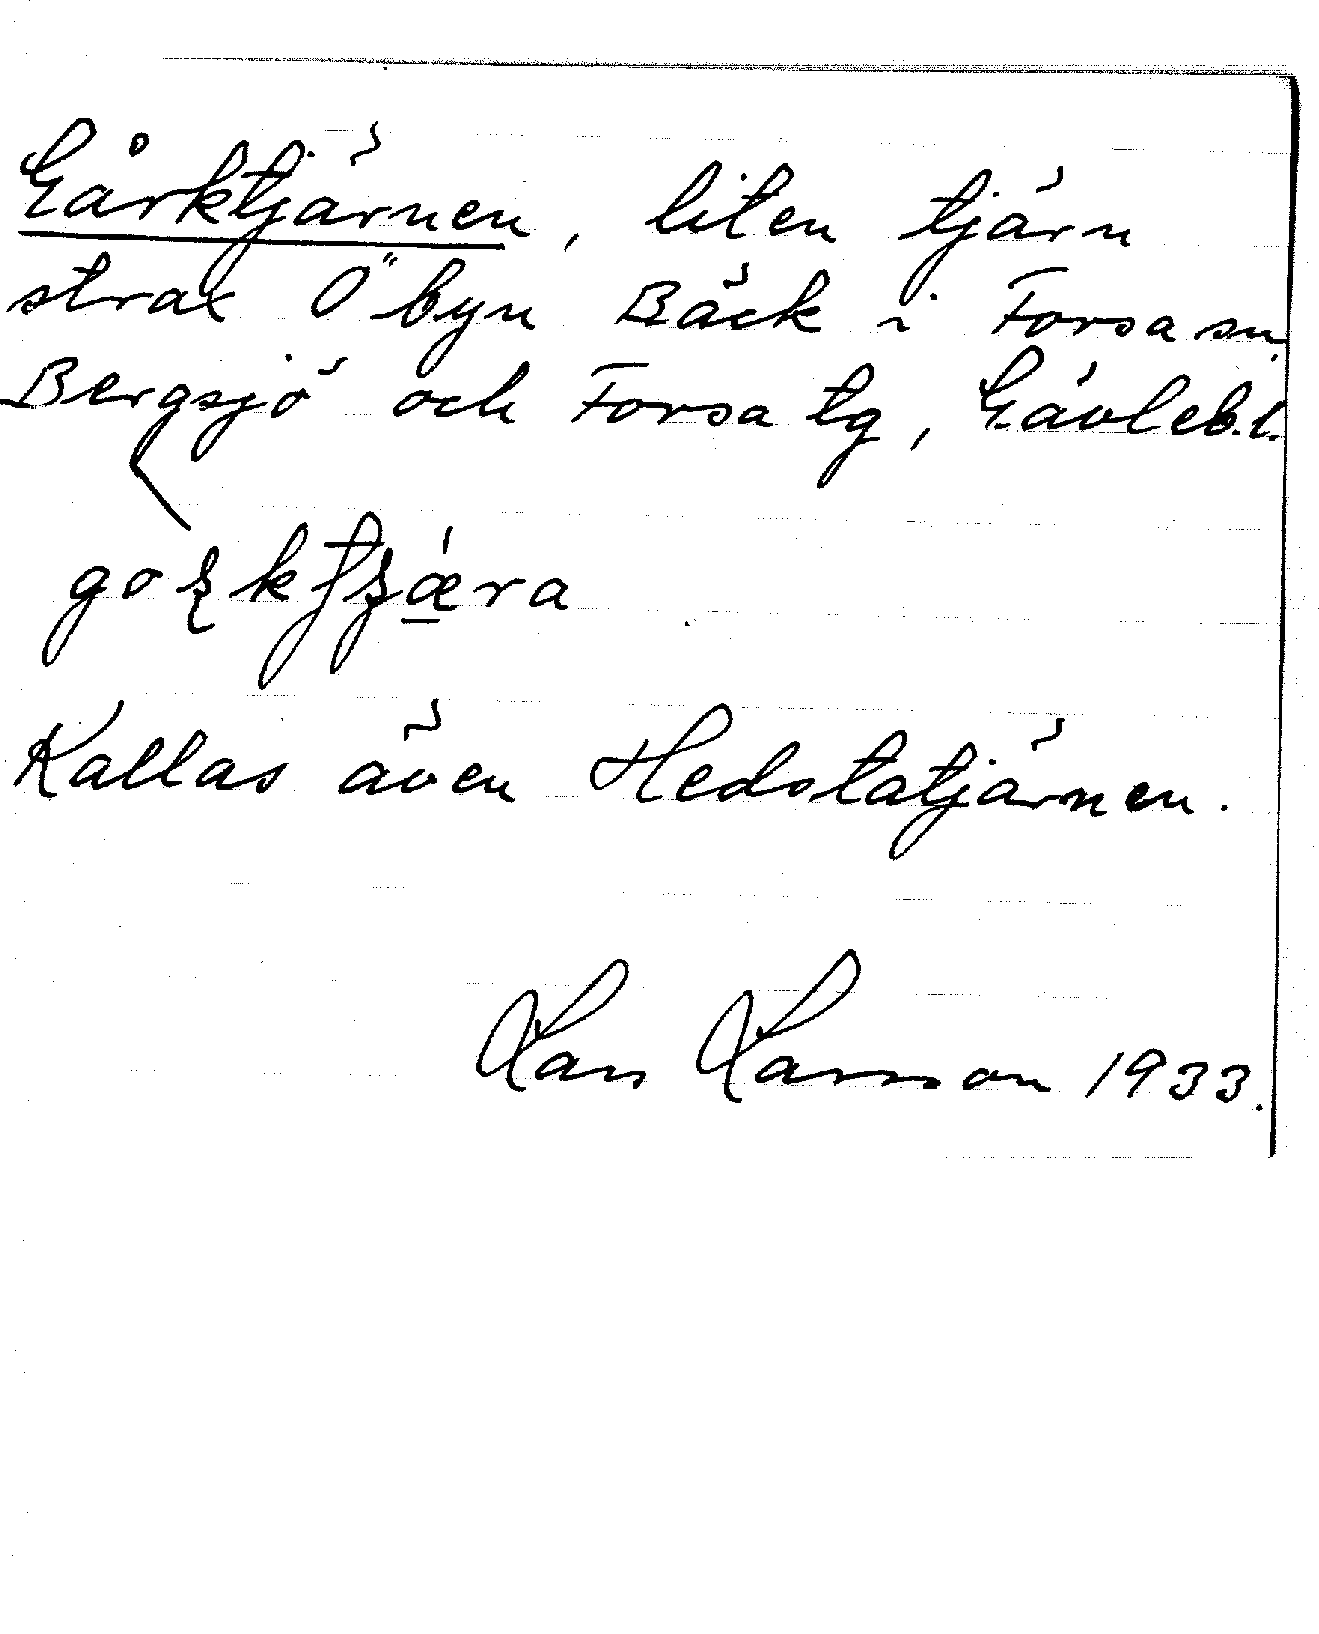 Gårktjärnen, liten tjärn
strax Ö byn Bäck i Forsa sn.
Bergsjö och Forsa tg, Gävleb.l.
Kallas även Hedstatjärnen.
Lars Larsson 1933.